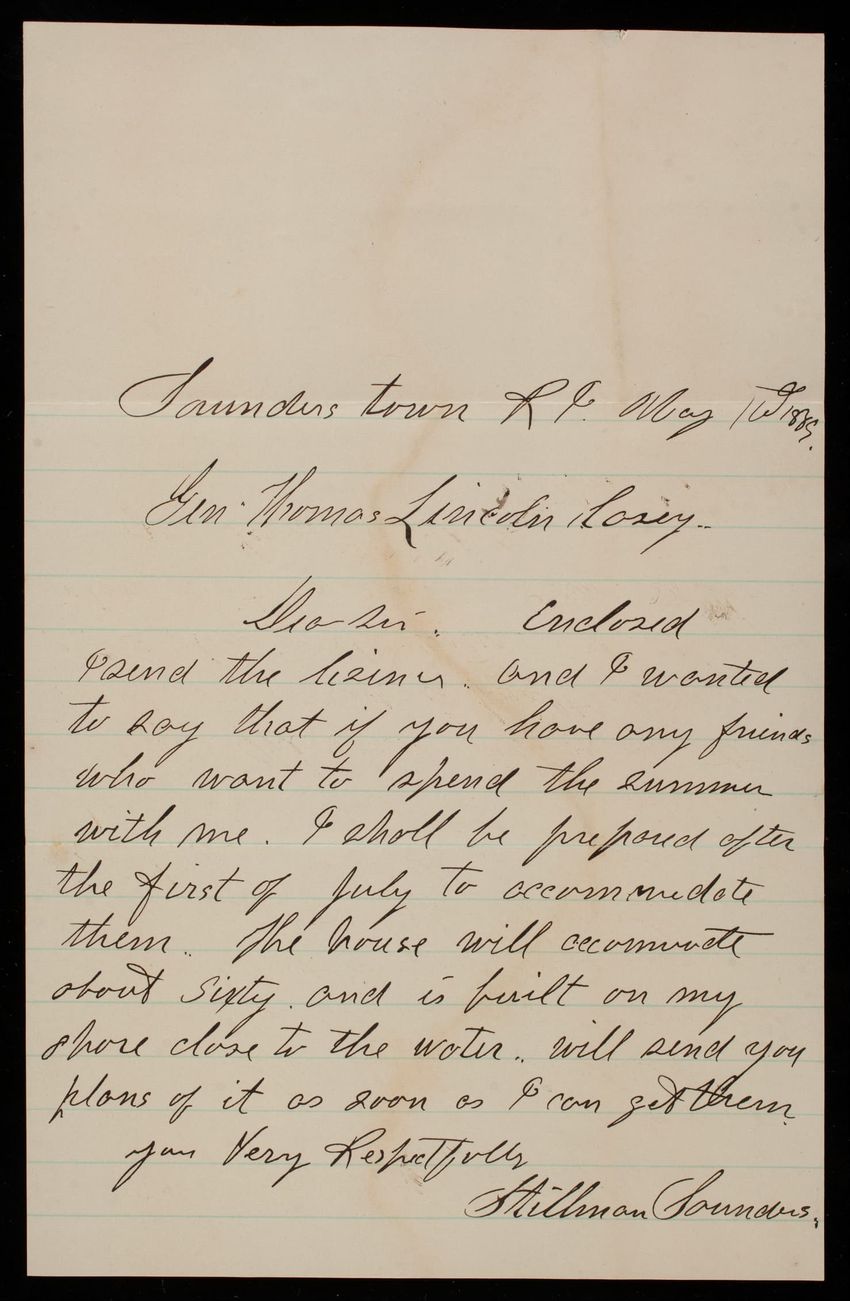 Saunders town R I. May 1889.
Gen. Thomas Lincoln Casey..
Dear Sir. Enclosed
I send the lisines.. and I wanted
to say that if you have any friends
who want to spend the summer
with me. I shall be prepared after
the first of July to accommedate
them.. The house will accomodate
about sixty. and is built on my
shore close to the water.. will send you
plans of it as soon as I can get them.
your Very Respectfully
Stillman Saunders.